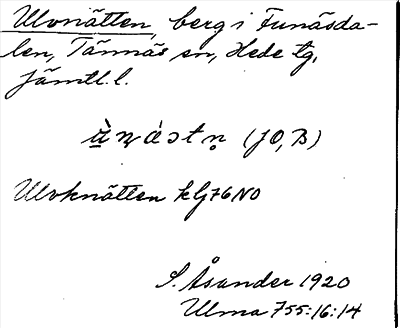 Ulvnätten, berg i Funäsda-
len, Tännäs sn, Hede tg,
Jämtl. l.
(JO, B)
Ulvknätten kG76NO
S. Åsander 1920
Ulma 755:16:14